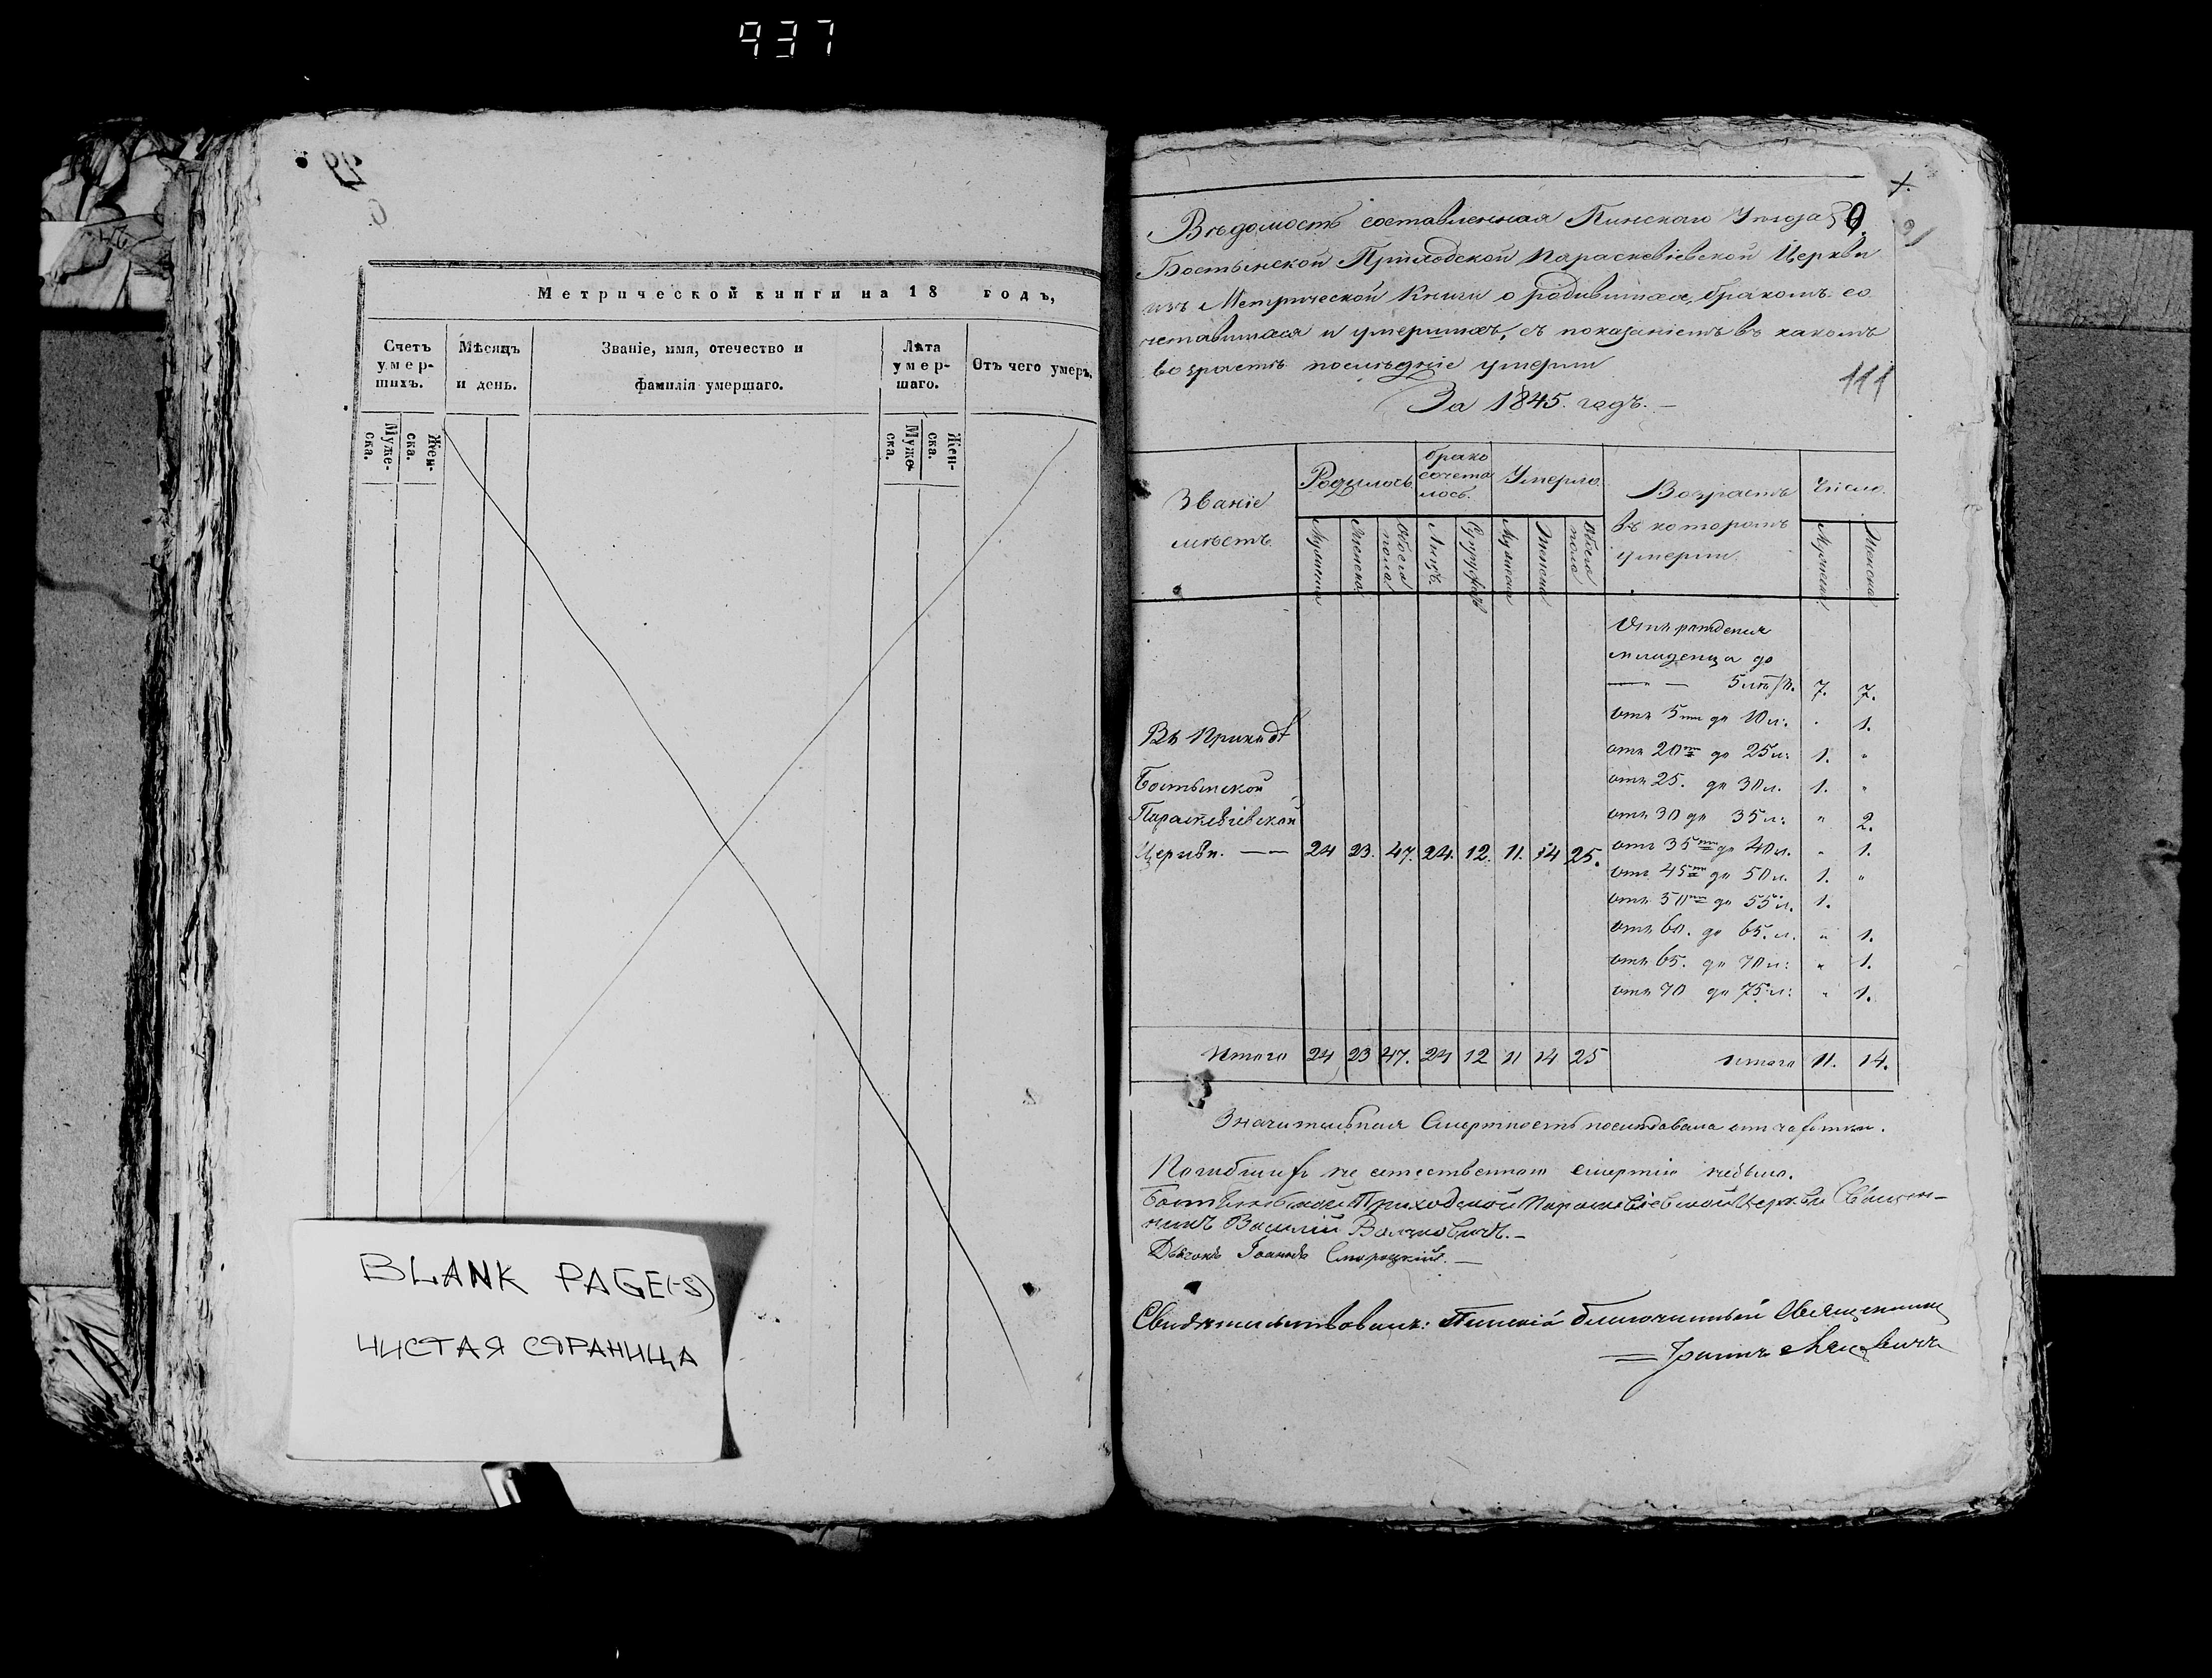 937
29
Метрической книги на 18 годъ,
Счетъ умер-шихъ.
Мѣсяцъ и день.
Званіе, имя, отечество и фамилія умершаго.
Лѣта умер-шаго.
Отъ чего умеръ.
Муже-ска.
Жен-ска.
Муже-ска.
Жен-ска.
BLANK PAGE(-S)
ЧИСТАЯ СТРАНИЦА
Вѣдомость составленная Пинскаго Уѣзда
Бостынской Приходской Параскевіевской Церкви
изъ Метрической Книги о родившихся, бракомъ со
четавшихся и умершихъ, съ показаніемъ въ какомъ
возрастѣ послѣдніе умерли
111
За 1845. годъ. —
Званіе мѣстъ.
Родилось
брако сочета лось.
Умерло.
Возрастъ въ которомъ умерли
Число.
Мужеска
Женска
Обоего пола
Лицъ.
Супружѣ
Мужеска
Женска
Обоего пола
Мужеска
Женска
Отъ рожденія
младенца до
5 лѣтъ 7. 7.
отъ 5 до 10 л: . 1.
Въ Приходѣ
отъ 20 до 25 л: 1. "
Бостынской
отъ 25. до 30 л. 1. "
Параскевіевской
отъ 30 до 35 л: " 2.
Церкви. — — 24 23. 47. 24. 12. 11. 14 25.
отъ 35 до 40 л. " 1.
отъ 45 до 50 л. 1. "
отъ 50 до 55 л. 1.
отъ 60. до 65. л. " 1.
отъ 65. до 70 л: " 1.
отъ 70 до 75 л: " 1.
Итого 24 23 47. 24 12 11 14 25 итого 11. 14.
Значительная Смертность послѣдовала отъ чахотки.
Погибших не естественною смертію небыло.
Приходской Параскевіевской Церкви Священ-
никъ Василій
Дьячокъ Іоаннъ
Свидѣтельствовалъ: Пинскій благочинный Священникъ